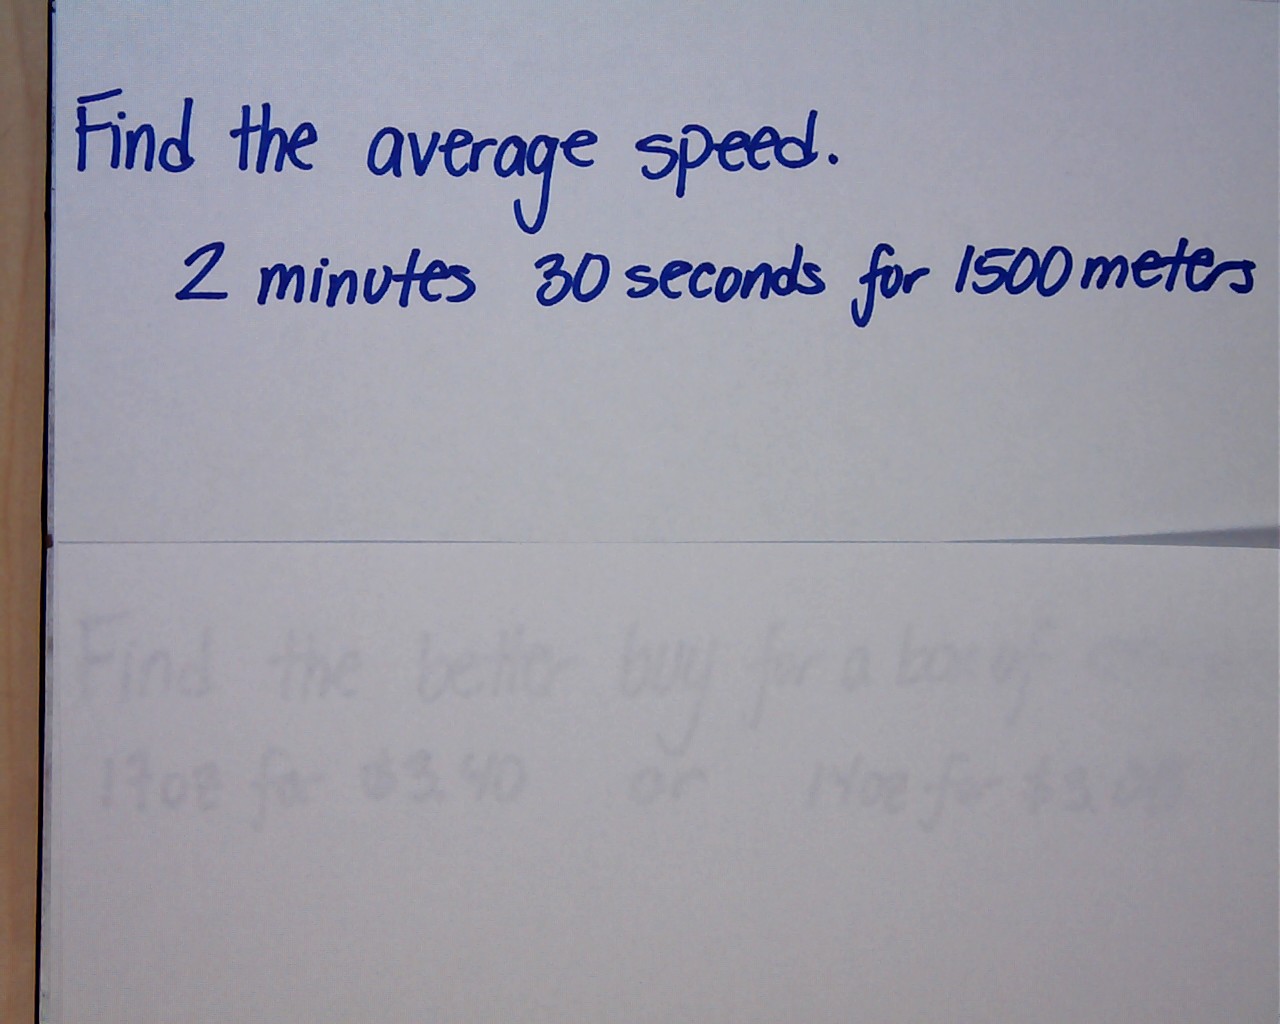 Find the average speed.
2 minutes 30 seconds for 1500 meters
Find the better buy for a box of
17oz for $3.40 or 14oz for